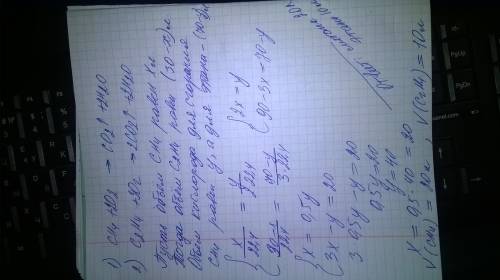 1) CH4 + 2O2 → CO2↑ + 2H2O
2) C2H4 + 3O2 → 2CO2↑ + 2H2O
Пусть объем CH4 равен x л
Тогда объем C2H4 равен (30-x) л
Объем кислорода для сгорания
CH4 равен y, а для этана - (70-y) л
x/22,4 = y/2·22,4
2x = y
90-3x = 70-y
x = 0,5y
3x - y = 20
3·0,5y - y = 20
0,5y = 20
y = 40
x = 0,5·40 = 20
V(CH4) = 20 л, V(C2H4) = 10 л
Ответ: